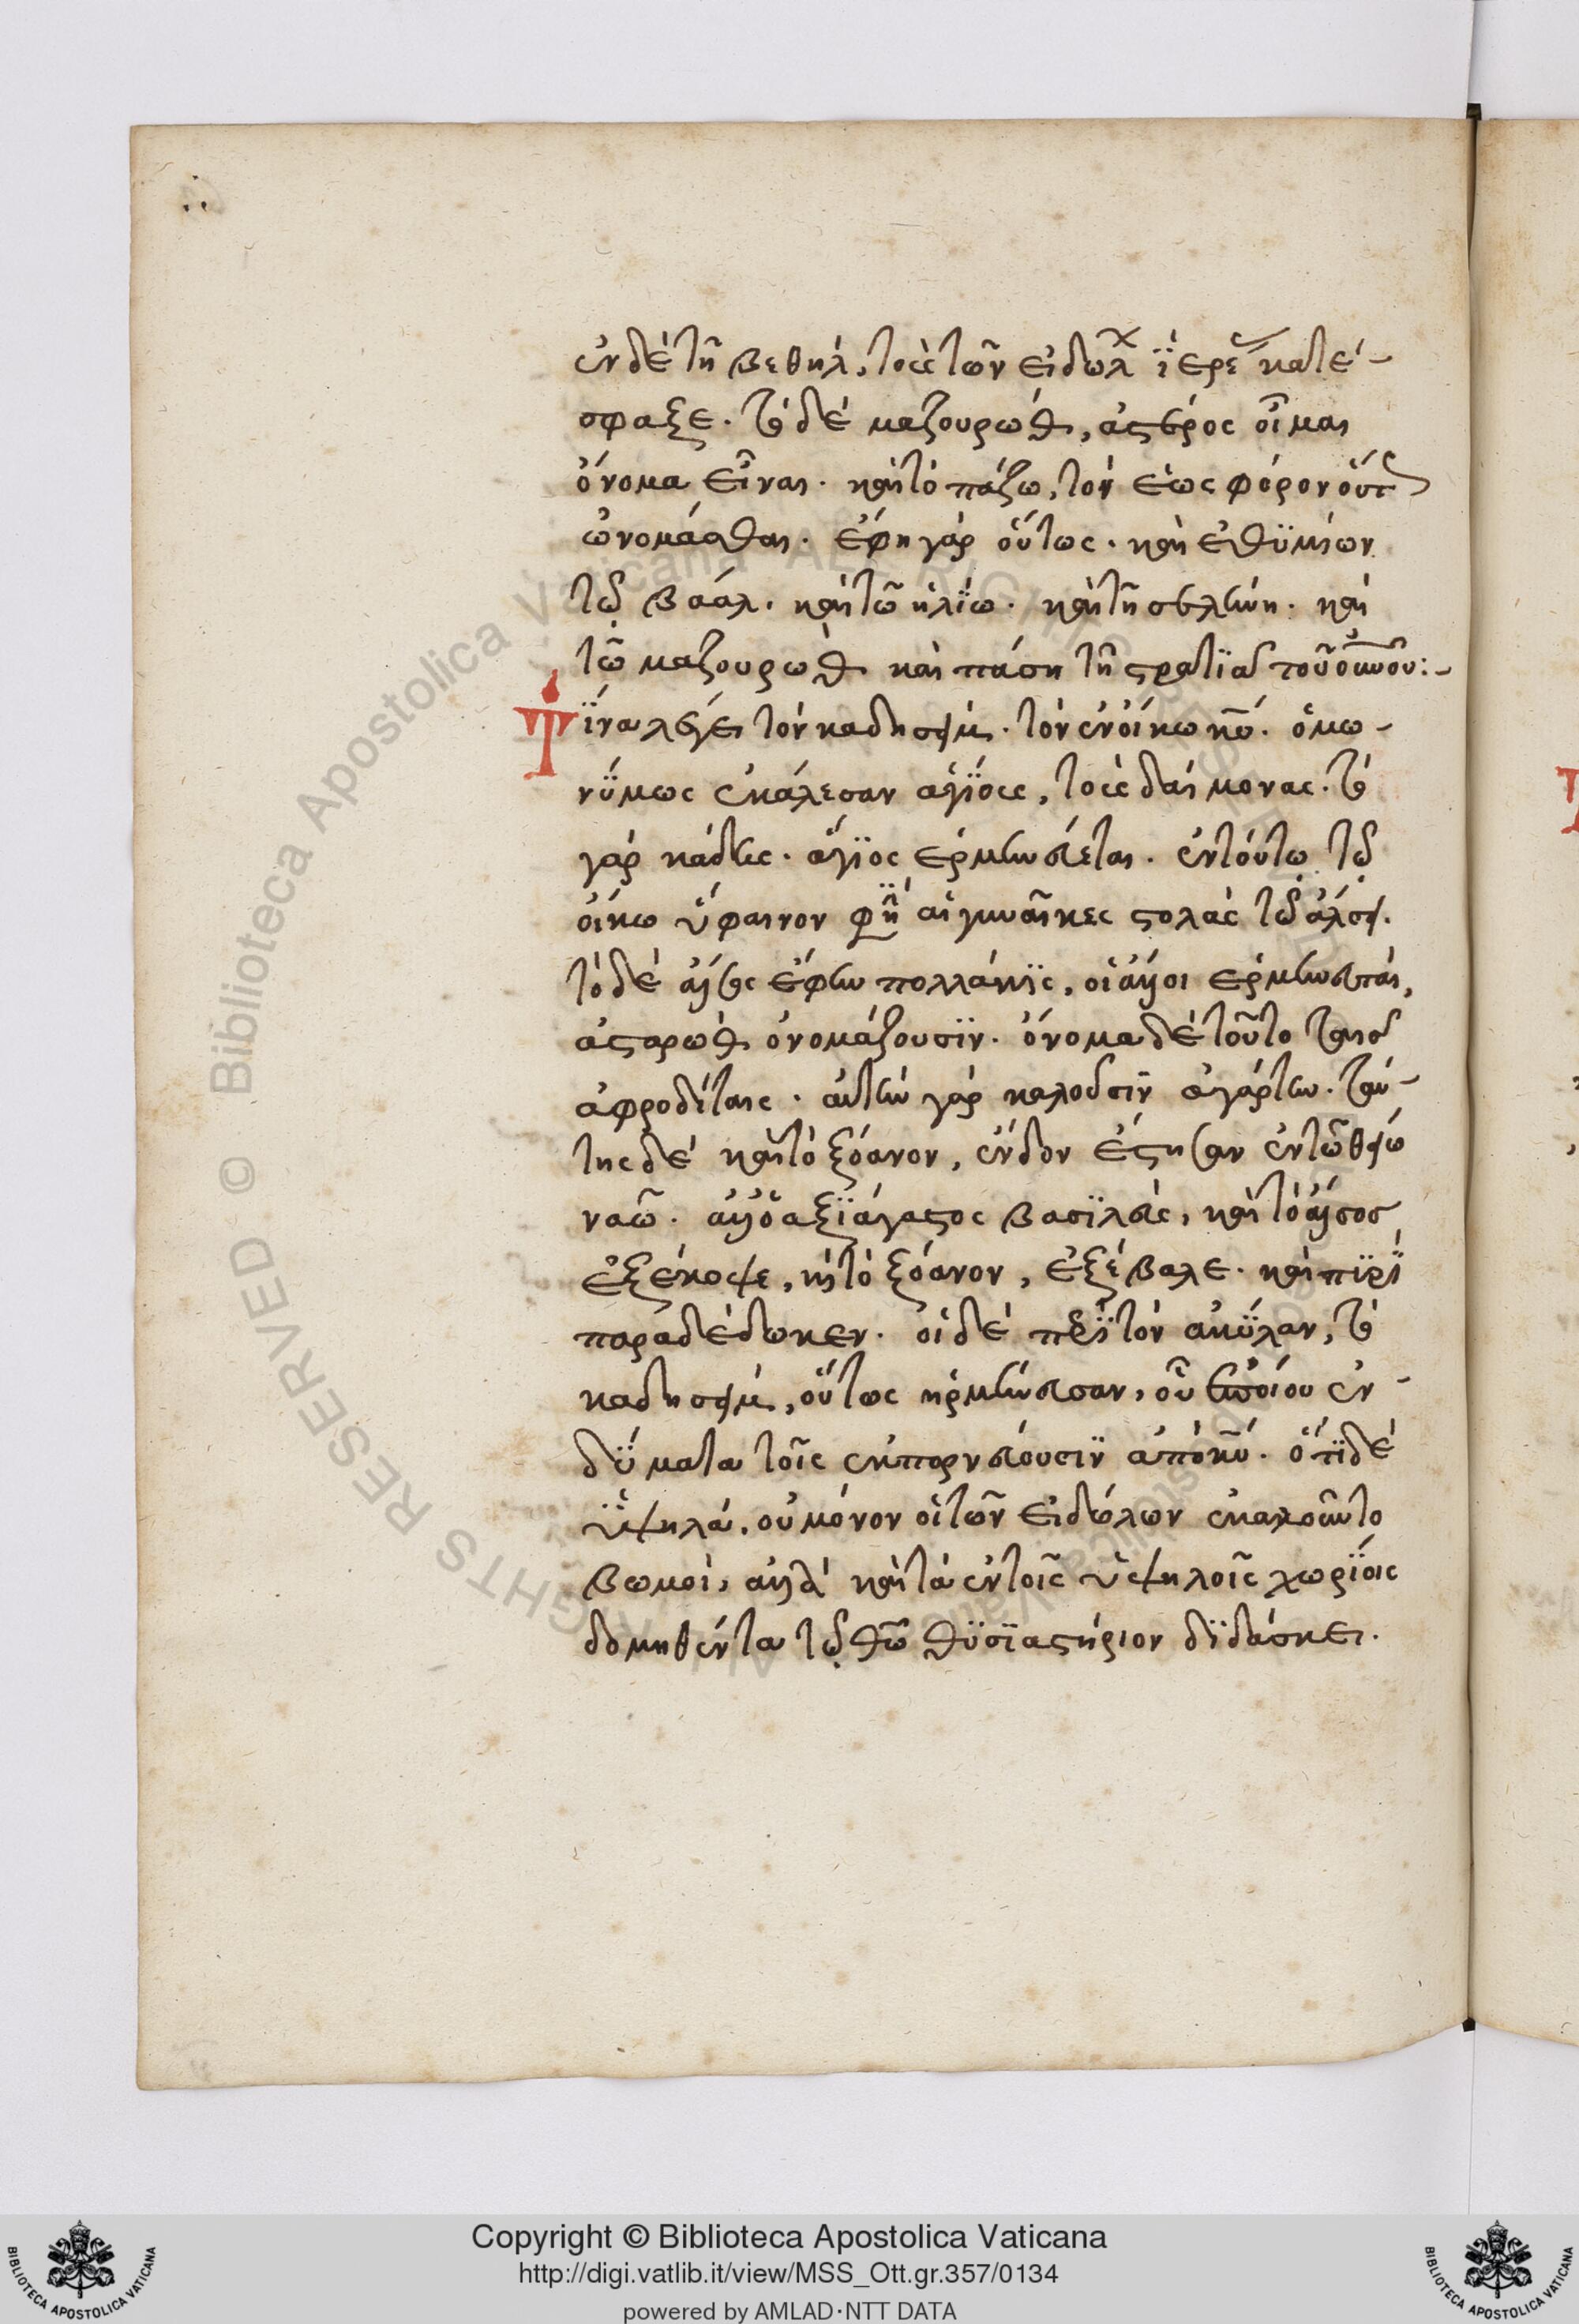 ἐν δὲ τῆ βεθήλ, τοὺς τῶν εἰδώλ ἱερεῖς κατέ-
σφαξε. τὸ δὲ μαζουρὼθ, ἀστέρος οἶμαι
ὄνομα εἶναι. καὶ τοπάζω, τὸν ἑωσφόρον οὕτως
ὠνομάσθαι. ἔφη γὰρ οὕτως. καὶ ἐθυμίων
τῶ βάαλ. καὶ τῶ ἡλίω. καὶ τῆ σελήνη. καὶ
τῶ μαζουρὼθ καὶ πάση τῆ στρατιᾶ τοῦ οὐνοῦ:-
Τίνα λέγει τὸν καδησεὶμ. τὸν ἐν οἴκω κυ. ὁμω-
νύμως ἐκάλεσαν ἁγίους, τοὺς δαίμονας. τὸ
γὰρ κάδης. ἅγιος ἑρμηνεύεται. ἐν τούτω τῶ
οἴκω ὕφαινον φησὶ αἱ γυναῖκες στολὰς τῶ ἄλσει.
τὸ δὲ ἄλσος ἔφην πολλάκις, οἱ ἄλλοι ἑρμηνευταὶ,
ἀσταρὼθ ὀνομάζουσιν. ὄνομα δὲ τοῦτο ταῖς
ἀφροδίταις. αὐτὴν γὰρ καλοῦσιν ἀγάρτην. ταύ-
της δὲ καὶ τὸ ξόανον, ἔνδον ἔστησαν ἐν τῶ θείω
ναῶ. ἀλλ' ὁ ἀξιάγαστος βασιλεὺς, καὶ τὸ ἄλσος
ἐξέκοψε, καὶ τὸ ξόανον, ἐξέβαλε. καὶ πυρὶ
παραδέδωκεν. οἱ δὲ περὶ τὸν ἀκύλαν, τὸ
καδησεὶμ, οὕτως ἡρμήνευσαν, οὗ ἐποίουν ἐν-
δύματα τοῖς ἐκπορνεύουσιν ἀπὸ κυ. ὅτι δὲ
ὑψηλὰ, οὐ μόνον οἱ τῶν εἰδώλων ἐκαλοῦντο
βωμοὶ, ἀλλὰ καὶ τὰ ἐν τοῖς ὑψηλοῖς χωρίοις
δομηθέντα τῶ θω θυσιαστήριον διδάσκει.
Copyright © Biblioteca Apostolica Vaticana
http://digi.vatlib.it/view/MSS_Ott.gr.357/0134
powered by AMLAD·NTT DATA